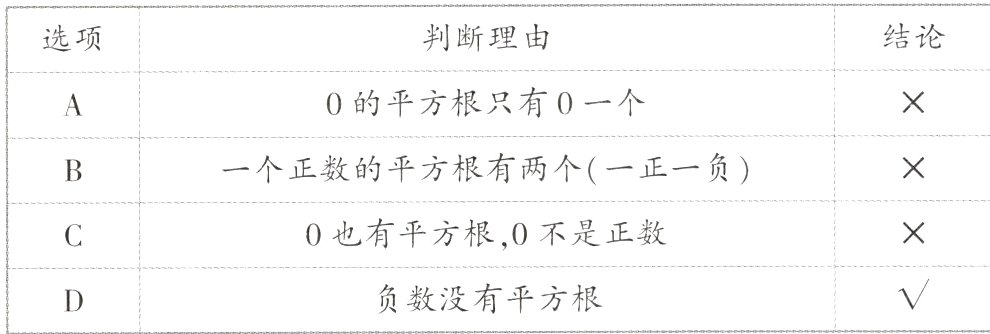 选项 判断理由 结论
A 0的平方根只有0一个 ×
B 一个正数的平方根有两个(一正一负) ×
C 0也有平方根,0不是正数 ×
D 负数没有平方根 √